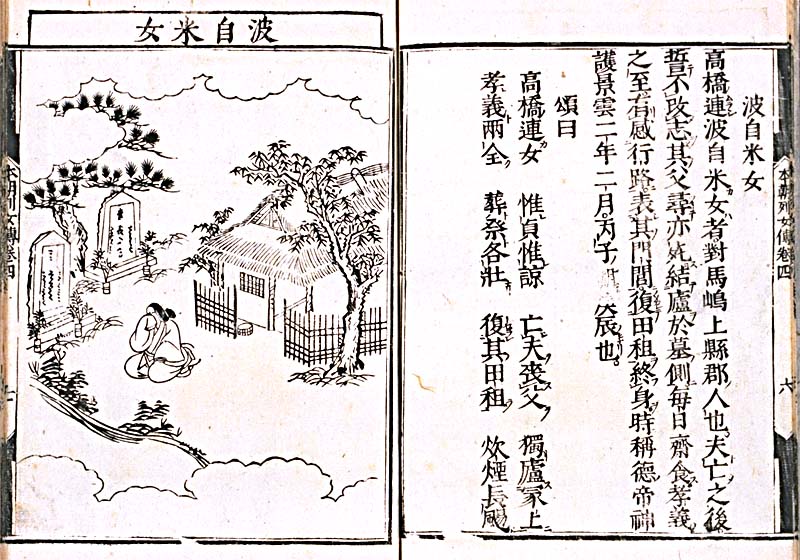 波自米女
高橋連波自米女者對馬嶋上縣郡人也夫亡之後
誓不改志其父尋亦死結廬於墓側毎日齊食孝義
之至有感行路表其門閭復田租終身時稱德帝神
護景雲二年二月丙子朔戊辰也
頌曰
高橋連女 惟貞惟諒 亡夫喪父 獨廬冢上
孝義兩全 葬祭各壯 復其田租 炊煙長颺
本朝列女傳卷四
六
波自米女
本朝列女傳卷四
七